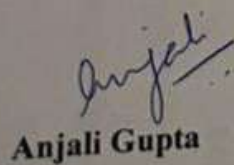 Anjali
Anjali Gupta